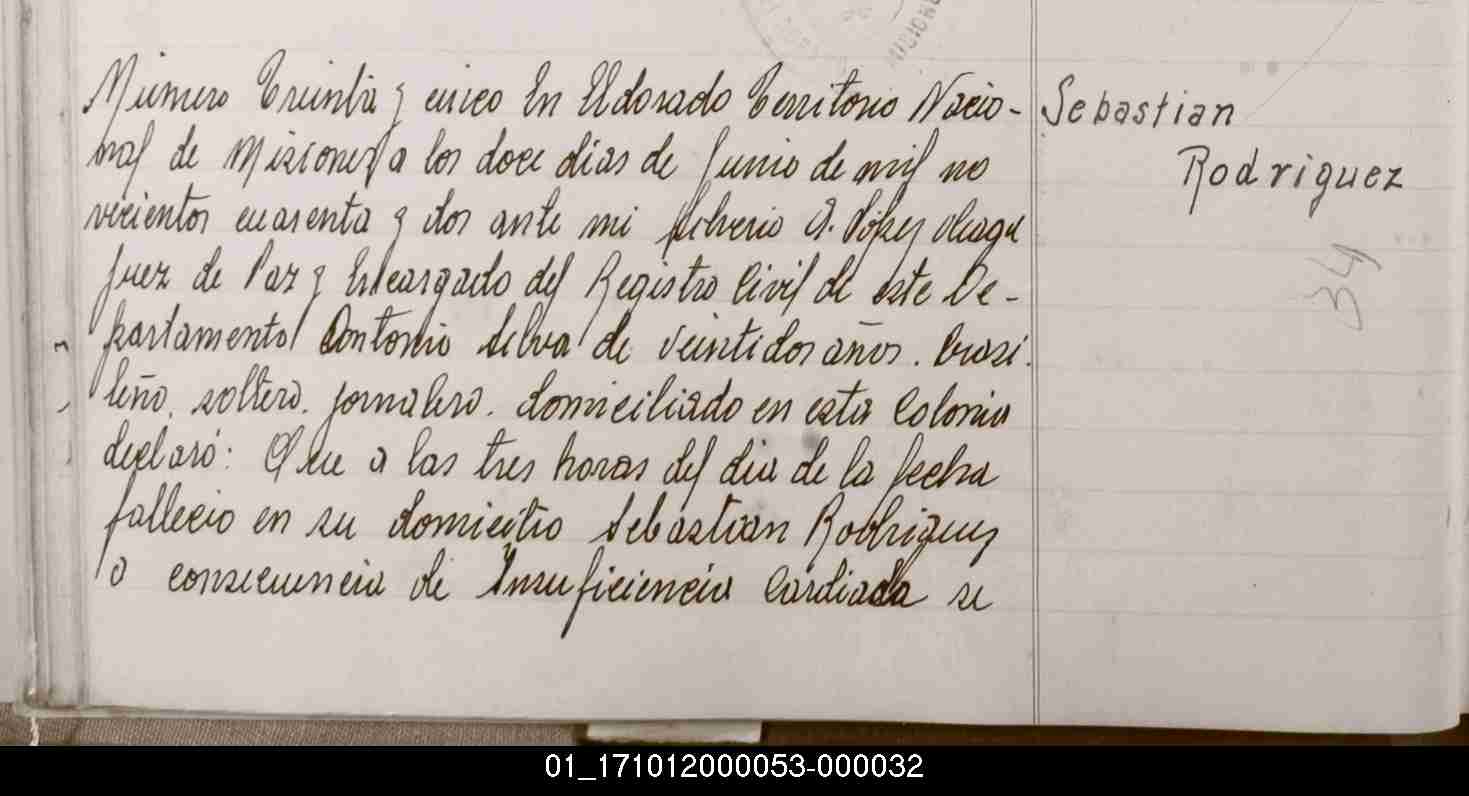 Número Treinta y cinco En Eldorado Territorio Nacio-
nal de Misiones a los doce dias de Junio de mil no
vecientos cuarenta y dos ante mi Silverio A. López
Juez de Paz y Encargado del Registro Civil de este De-
partamento Antonio Silva de veintidos años. brasi.
leño. soltero. jornalero. domiciliado en esta Colonia
declaró: Que a las tres horas del dia de la fecha
fallecio en su domicilio Sebastian Rodriguez
a consecuencia de Insuficiencia Cardiada se
Sebastian
Rodriguez
34
MISIONES
01_171012000053-000032